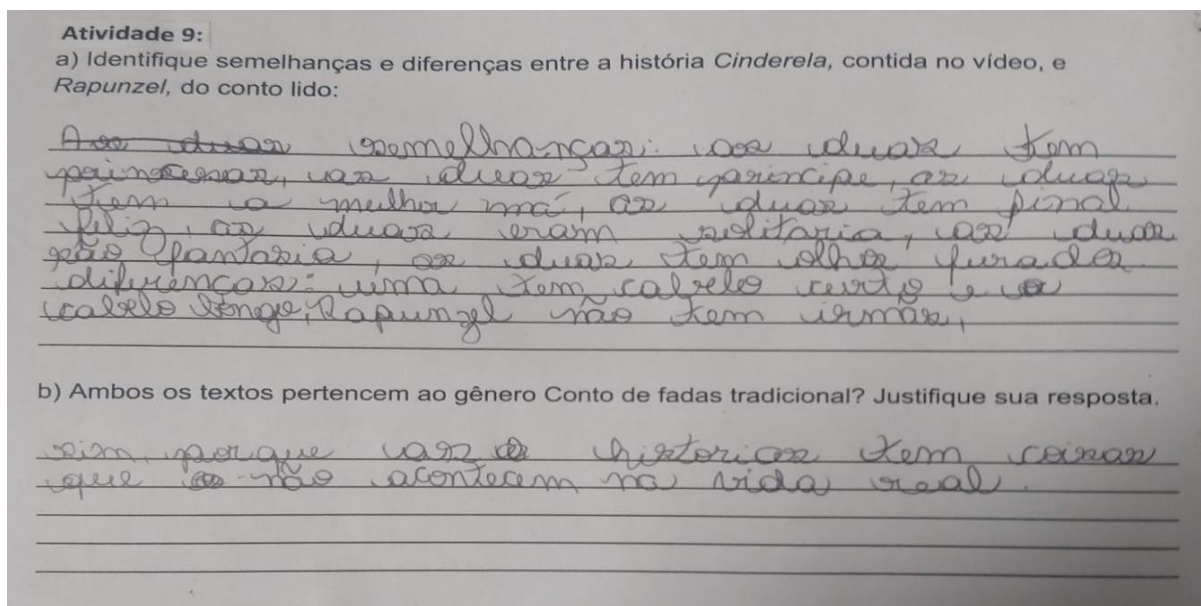 Atividade 9:
a) Identifique semelhanças e diferenças entre a história Cinderela, contida no vídeo, e
Rapunzel, do conto lido:
As duas semelhanças: as duas tem
princesas, as duas tem principe, as duas
tem a mulher má, as duas tem final
feliz, as duas eram solitaria, as duas
são fantasia, as duas tem olhos furados
diferenças: uma tem cabelo curto e
cabelo longo, Rapunzel não tem irmãs,
b) Ambos os textos pertencem ao gênero Conto de fadas tradicional? Justifique sua resposta.
sim, porque as historias tem coisas
que não acontecem na vida real.